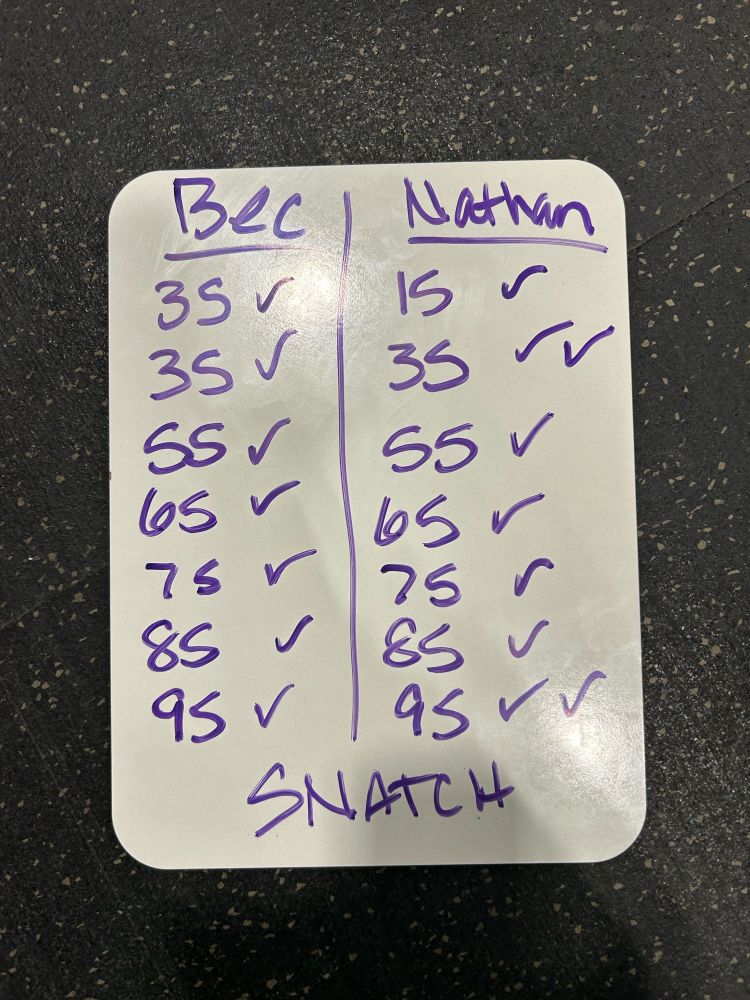 Bec Nathan
35 ✓ 15 ✓
35 ✓ 35 ✓✓
55 ✓ 55 ✓
65 ✓ 65 ✓
75 ✓ 75 ✓
85 ✓ 85 ✓
95 ✓ 95 ✓✓
SNATCH